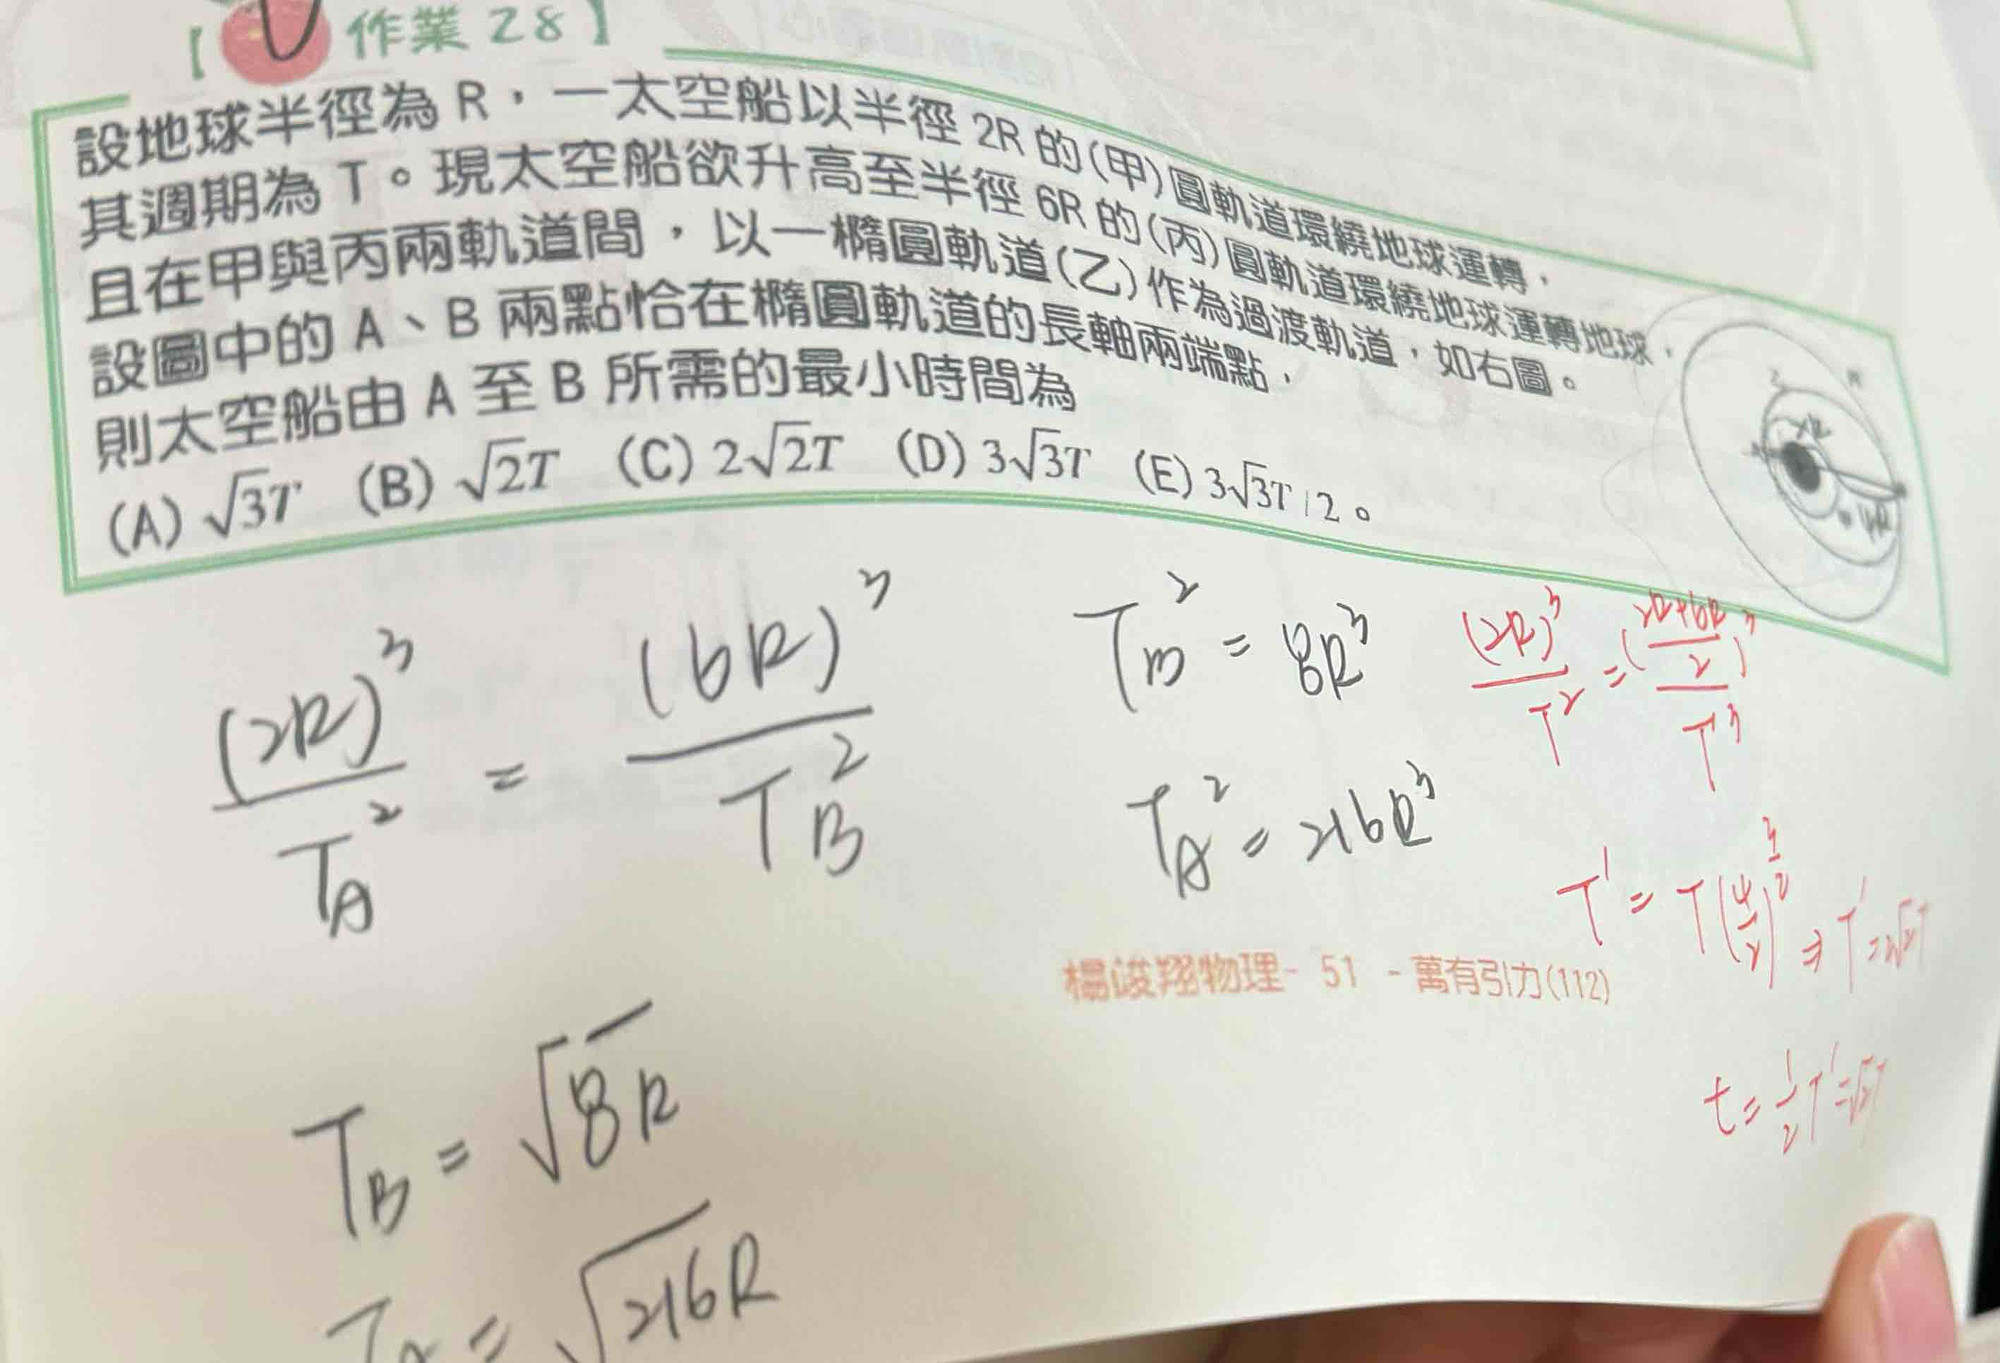 【作業 28】
設地球半徑為 R，一太空船以半徑 2R 的(甲)圓軌道環繞地球運轉，
其週期為 T。現太空船欲升高至半徑 6R 的(丙)圓軌道環繞地球運轉地球，
且在甲與丙兩軌道間，以一橢圓軌道(乙)作為過渡軌道，如右圖。
設圖中的 A、B 兩點恰在橢圓軌道的長軸兩端點，
則太空船由 A 至 B 所需的最小時間為
(A) √3T (B) √2T (C) 2√2T (D) 3√3T (E) 3√3T/2。
(2R)³/T_A² = (6R)³/T_B²
T_B² = 8R³
T_A² = 216R³
T_B = √8R
= √216R
(2R)³/T² = ((2R+6R)/2)³/T³
T' = T(4/2)^(3/2) ⇒ T' = 2√2T
t = 1/2 T' = √2T
楊峻翔物理- 51 - 萬有引力(112)